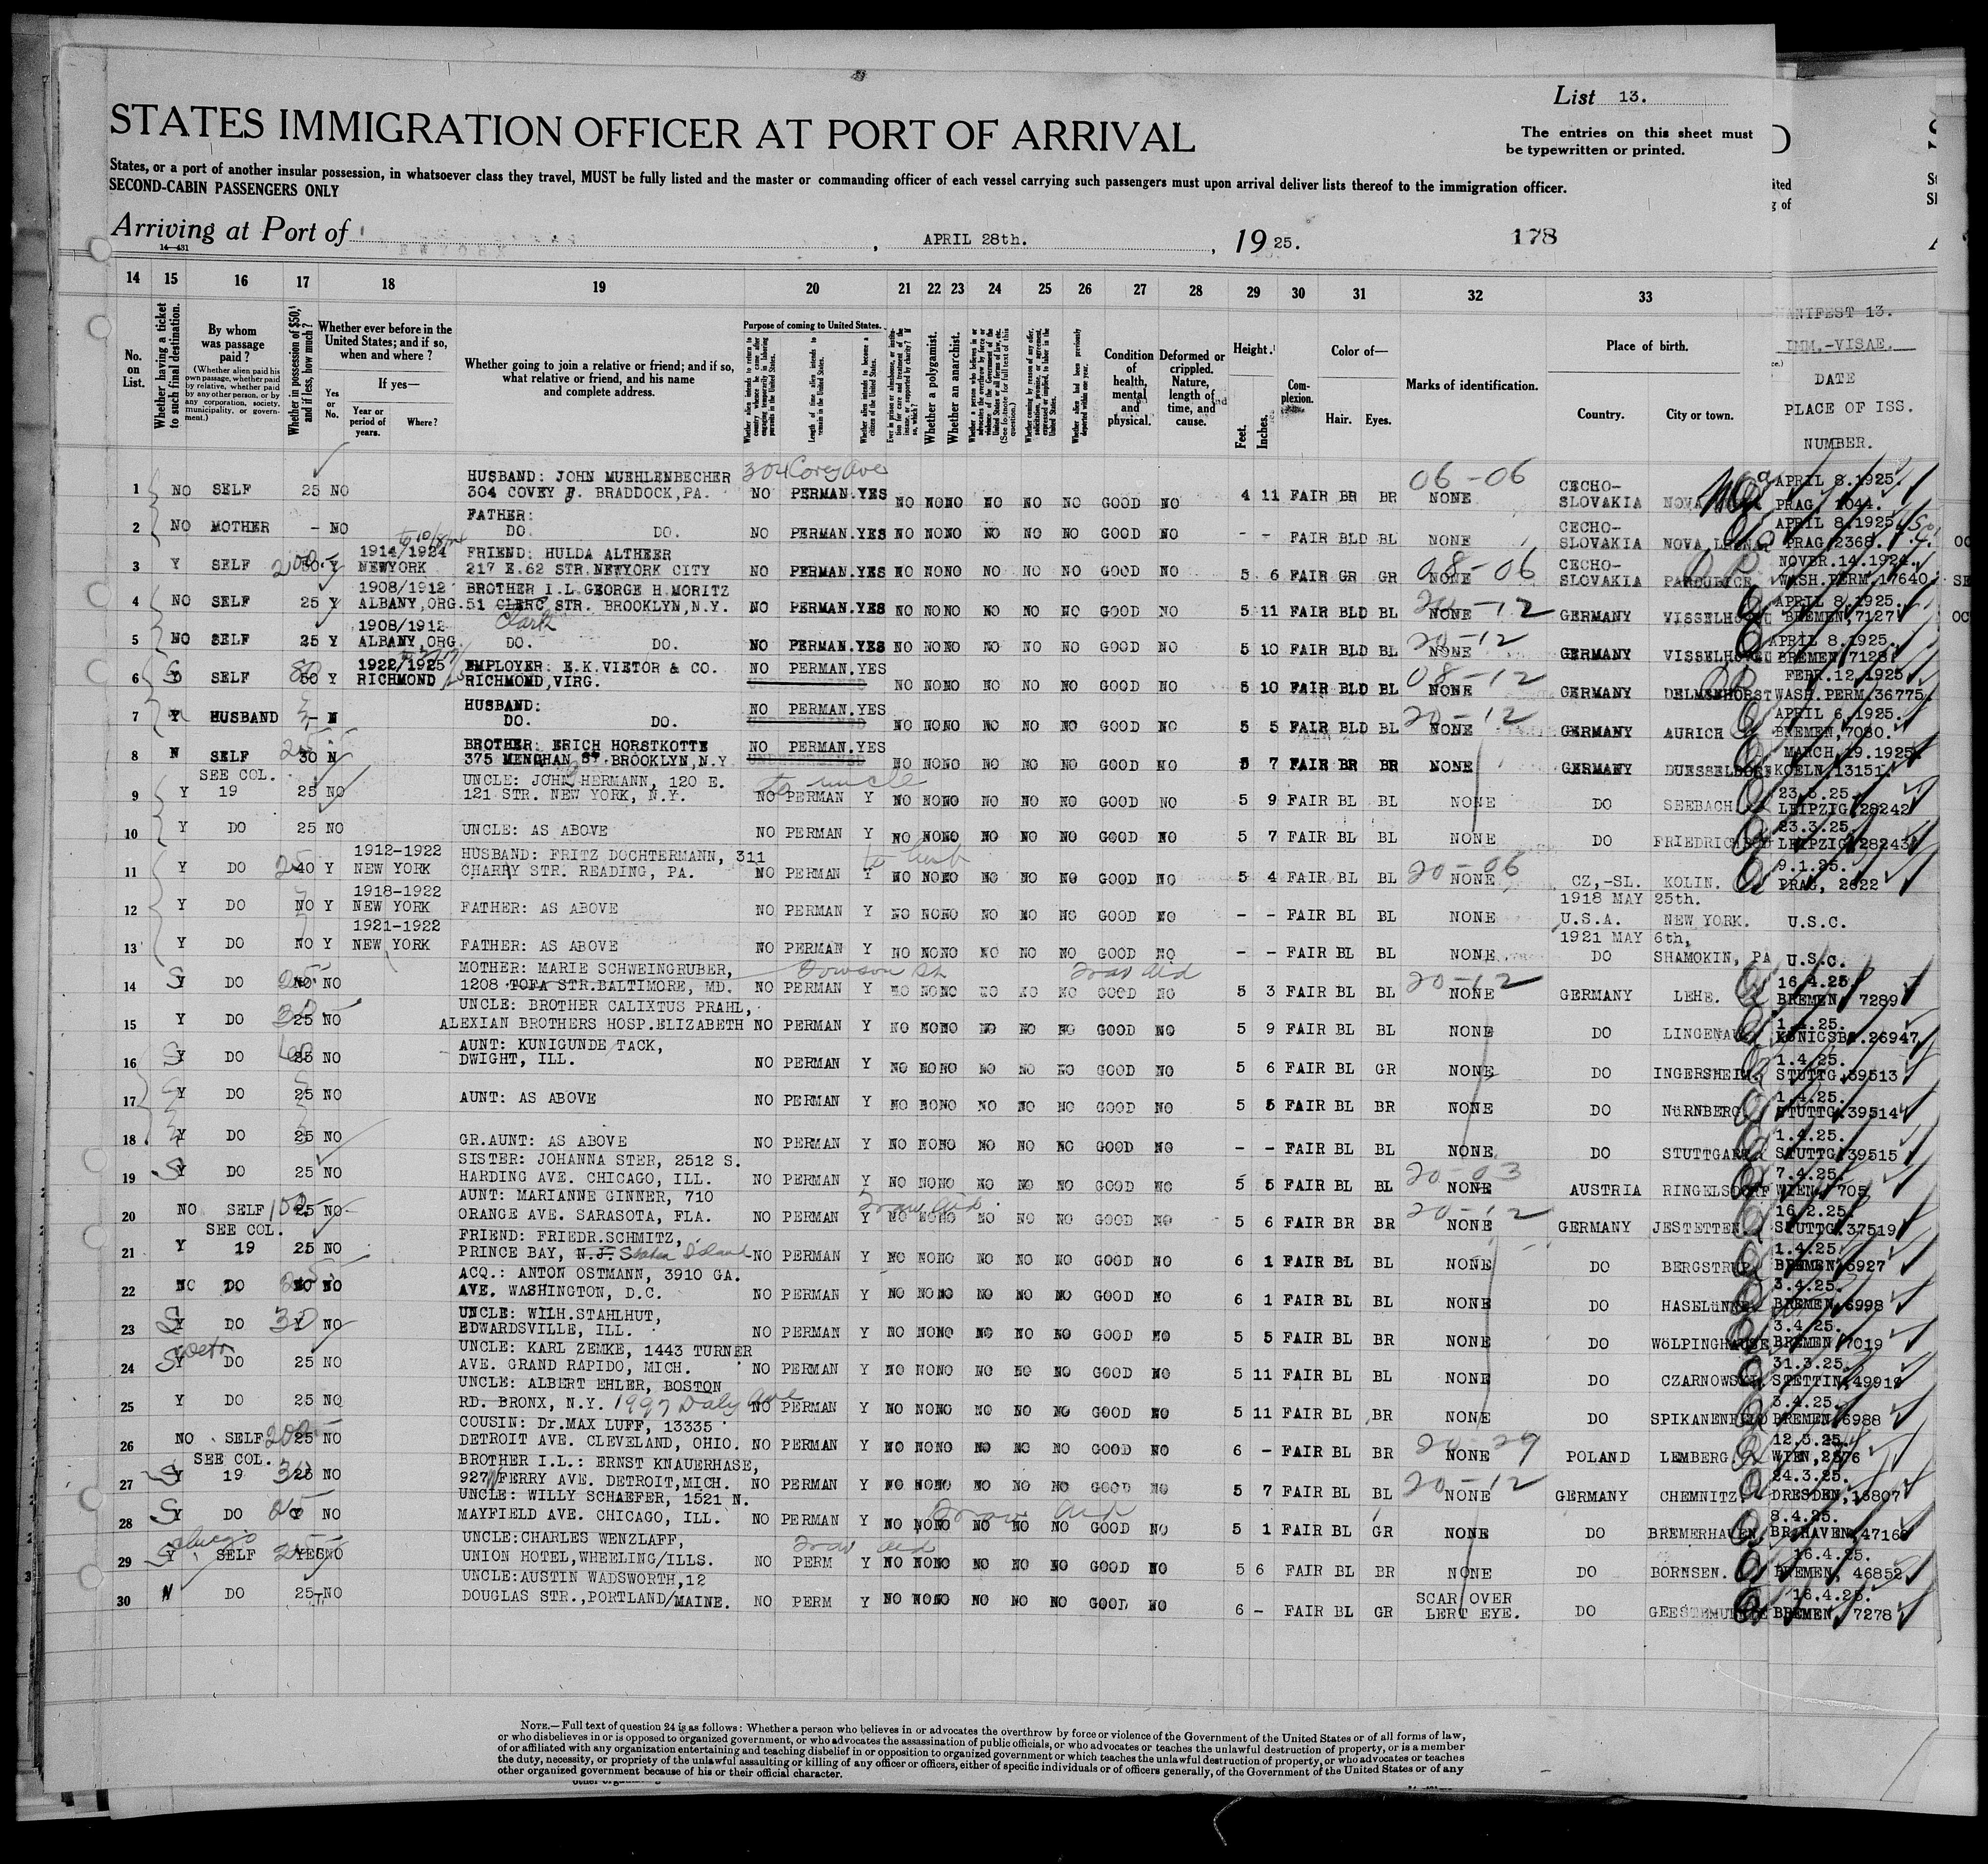 List 13.
STATES IMMIGRATION OFFICER AT PORT OF ARRIVAL
The entries on this sheet must
be typewritten or printed.
States, or a port of another insular possession, in whatsoever class they travel, MUST be fully listed and the master or commanding officer of each vessel carrying such passengers must upon arrival deliver lists thereof to the immigration officer.
SECOND-CABIN PASSENGERS ONLY
Arriving at Port of , APRIL 28th. , 19 25. 178
14—431
14 15 16 17 18 19 20 21 22 23 24 25 26 27 28 29 30 31 32 33
No. on List.
Whether having a ticket to such final destination.
By whom was passage paid?
(Whether alien paid his own passage, whether paid by relative, whether paid by any other person, or by any corporation, society, municipality, or government.)
Whether in possession of $50, and if less, how much?
Whether ever before in the United States; and if so, when and where?
Yes or No.
If yes—
Year or period of years.
Where?
Whether going to join a relative or friend; and if so, what relative or friend, and his name and complete address.
Purpose of coming to United States.
Whether a polygamist.
Whether an anarchist.
Condition of health, mental and physical.
Deformed or crippled. Nature, length of time, and cause.
Height.
Feet. Inches.
Complexion.
Color of—
Hair. Eyes.
Marks of identification.
Place of birth.
Country. City or town.
MANIFEST 13.
IMM.-VISAE.
DATE
PLACE OF ISS.
NUMBER.
304 Corey Ave 06-06
HUSBAND: JOHN MUEHLENBECHER CECHO- APRIL 8.1925.
1 NO SELF 25 NO 304 COVEY BRADDOCK,PA. NO PERMAN.YES NO NO NO NO NO NO GOOD NO 4 11 FAIR BR BR NONE SLOVAKIA NOVA PRAG, 1044.
FATHER: CECHO- APRIL 8.1925
2 NO MOTHER - NO DO. DO. NO PERMAN.YES NO NO NO NO NO NO GOOD NO - - FAIR BLD BL NONE SLOVAKIA NOVA PRAG, 2368.
1914/1924 FRIEND: HULDA ALTHEER CECHO- NOVBR.14.1924.
3 Y SELF Y NEWYORK 217 E.62 STR.NEWYORK CITY NO PERMAN.YES NO NO NO NO NO NO GOOD NO 5 6 FAIR GR GR NONE 08-06 SLOVAKIA PARDUBICE WASH.PERM.17640
1908/1912 BROTHER I.L.GEORGE H.MORITZ APRIL 8.1925.
4 NO SELF 25 Y ALBANY,ORG. 51 CLERC STR. BROOKLYN,N.Y. NO PERMAN.YES NO NO NO NO NO NO GOOD NO 5 11 FAIR BLD BL NONE 20-12 GERMANY BREMEN,7127
Clark
1908/1912 APRIL 8.1925.
5 NO SELF 25 Y ALBANY,ORG. DO. DO. NO PERMAN.YES NO NO NO NO NO NO GOOD NO 5 10 FAIR BLD BL NONE 20-12 GERMANY BREMEN,7128.
1922/1925 EMPLOYER: E.K.VIETOR & CO. NO PERMAN.YES FEBR.12.1925
6 SELF Y RICHMOND RICHMOND,VIRG. NO NO NO NO NO NO GOOD NO 5 10 FAIR BLD BL NONE 08-12 GERMANY DELMENHORST WASH.PERM.36775
HUSBAND: NO PERMAN.YES APRIL 6.1925.
7 HUSBAND - N DO. DO. NO NO NO NO NO NO GOOD NO 5 5 FAIR BLD BL NONE 20-12 GERMANY AURICH BREMEN,7080.
BROTHER: ERICH HORSTKOTTE NO PERMAN.YES MARCH.19.1925
8 N SELF 30 N 375 MENGHAN ST. BROOKLYN,N.Y NO NO NO NO NO NO GOOD NO 5 7 FAIR BR BR NONE GERMANY DUESSELDORF KOELN,13151.
SEE COL. UNCLE: JOHN HERMANN, 120 E. to uncle
9 Y 19 25 NO 121 STR. NEW YORK, N.Y. NO PERMAN Y NO NO NO NO NO NO GOOD NO 5 9 FAIR BL BL NONE DO SEEBACH LEIPZIG,28242
23.3.25.
10 Y DO 25 NO UNCLE: AS ABOVE NO PERMAN Y NO NO NO NO NO NO GOOD NO 5 7 FAIR BL BL NONE DO LEIPZIG,28243
1912-1922 HUSBAND: FRITZ DOCHTERMANN, 311 to husb 9.1.25.
11 Y DO 40 Y NEW YORK CHARRY STR. READING, PA. NO PERMAN Y NO NO NO NO NO NO GOOD NO 5 4 FAIR BL BL NONE 20-06 CZ,-SL. KOLIN. PRAG, 2622
1918-1922 1918 MAY 25th.
12 Y DO NO Y NEW YORK FATHER: AS ABOVE NO PERMAN Y NO NO NO NO NO NO GOOD NO - - FAIR BL BL NONE U.S.A. NEW YORK. U.S.C.
1921-1922 1921 MAY 6th,
13 Y DO NO Y NEW YORK FATHER: AS ABOVE NO PERMAN Y NO NO NO NO NO NO GOOD NO - - FAIR BL BL NONE DO SHAMOKIN, PA U.S.C.
MOTHER: MARIE SCHWEINGRUBER, Trav aid 16.4.25.
14 Y DO NO NO 1208 TOFA STR.BALTIMORE, MD. NO PERMAN Y NO NO NO NO NO NO GOOD NO 5 3 FAIR BL BL NONE 20-12 GERMANY LEHE. BREMEN, 7289
UNCLE: BROTHER CALIXTUS PRAHL, 1.4.25.
15 Y DO 25 NO ALEXIAN BROTHERS HOSP.ELIZABETH NO PERMAN Y NO NO NO NO NO NO GOOD NO 5 9 FAIR BL BL NONE DO KÖNIGSB.26947
AUNT: KUNIGUNDE TACK, 1.4.25.
16 Y DO 25 NO DWIGHT, ILL. NO PERMAN Y NO NO NO NO NO NO GOOD NO 5 6 FAIR BL GR NONE DO INGERSHEIM STUTTG.39513
1.4.25.
17 Y DO 25 NO AUNT: AS ABOVE NO PERMAN Y NO NO NO NO NO NO GOOD NO 5 5 FAIR BL BR NONE DO NüRNBERG STUTTG.39514
1.4.25.
18 Y DO 25 NO GR.AUNT: AS ABOVE NO PERMAN Y NO NO NO NO NO NO GOOD NO - - FAIR BL BL NONE DO STUTTGART STUTTG.39515
SISTER: JOHANNA STER, 2512 S. 7.4.25.
19 Y DO 25 NO HARDING AVE. CHICAGO, ILL. NO PERMAN Y NO NO NO NO NO NO GOOD NO 5 5 FAIR BL BL NONE 20-03 AUSTRIA RINGELSDORF WIEN, 705
AUNT: MARIANNE GINNER, 710 Trav aid 16.2.25.
20 NO SELF 25 NO ORANGE AVE. SARASOTA, FLA. NO PERMAN Y NO NO NO NO NO NO GOOD NO 5 6 FAIR BR BR NONE 20-12 GERMANY JESTETTEN STUTTG.37519
SEE COL. FRIEND: FRIEDR.SCHMITZ, 1.4.25.
21 Y 19 25 NO PRINCE BAY, N.J. Staten Island NO PERMAN Y NO NO NO NO NO NO GOOD NO 6 1 FAIR BL BL NONE DO BREMEN,6927
ACQ.: ANTON OSTMANN, 3910 GA. 3.4.25.
22 NO DO NO NO AVE. WASHINGTON, D.C. NO PERMAN Y NO NO NO NO NO NO GOOD NO 6 1 FAIR BL BL NONE DO BREMEN,6998
UNCLE: WILH.STAHLHUT, 3.4.25.
23 Y DO 30 Y NO EDWARDSVILLE, ILL. NO PERMAN Y NO NO NO NO NO NO GOOD NO 5 5 FAIR BL BR NONE DO WöLPINGHAUSE BREMEN,7019
UNCLE: KARL ZEMKE, 1443 TURNER 31.3.25.
24 Y DO 25 NO AVE. GRAND RAPIDO, MICH. NO PERMAN Y NO NO NO NO NO NO GOOD NO 5 11 FAIR BL BL NONE DO STETTIN,49919
UNCLE: ALBERT EHLER, BOSTON 3.4.25.
25 Y DO 25 NO RD. BRONX, N.Y. 1997 Daly Ave NO PERMAN Y NO NO NO NO NO NO GOOD NO 5 11 FAIR BL BR NONE DO BREMEN,6988
COUSIN: Dr.MAX LUFF, 13335
26 NO SELF 25 NO DETROIT AVE. CLEVELAND, OHIO. NO PERMAN Y NO NO NO NO NO NO GOOD NO 6 - FAIR BL BR NONE 20-29 POLAND LEMBERG WIEN,2576
SEE COL. BROTHER I.L.: ERNST KNAUERHASE, 24.3.25.
27 Y 19 25 NO 927 FERRY AVE. DETROIT,MICH. NO PERMAN Y NO NO NO NO NO NO GOOD NO 5 7 FAIR BL BL NONE 20-12 GERMANY CHEMNITZ. DRESDEN,13807
UNCLE: WILLY SCHAEFER, 1521 N. Trav Aid 8.4.25.
28 Y DO Y NO MAYFIELD AVE. CHICAGO, ILL. NO PERMAN Y NO NO NO NO NO NO GOOD NO 5 1 FAIR BL GR NONE DO BREMERHAVEN BR.HAVEN,4716
UNCLE:CHARLES WENZLAFF, Trav aid 16.4.25.
29 Y SELF YES NO UNION HOTEL,WHEELING/ILLS. NO PERM Y NO NO NO NO NO NO GOOD NO 5 6 FAIR BL BR NONE DO BORNSEN. BREMEN, 46852
UNCLE:AUSTIN WADSWORTH,12 SCAR OVER 16.4.25.
30 N DO 25 NO DOUGLAS STR.,PORTLAND/MAINE. NO PERM Y NO NO NO NO NO NO GOOD NO 6 - FAIR BL GR LERT EYE. DO BREMEN, 7278
NOTE.—Full text of question 24 is as follows: Whether a person who believes in or advocates the overthrow by force or violence of the Government of the United States or of all forms of law,
or who disbelieves in or is opposed to organized government, or who advocates the assassination of public officials, or who advocates or teaches the unlawful destruction of property, or is a member
of or affiliated with any organization entertaining and teaching disbelief in or opposition to organized government or which teaches the unlawful destruction of property, or who advocates or teaches
the duty, necessity, or propriety of the unlawful assaulting or killing of any officer or officers, either of specific individuals or of officers generally, of the Government of the United States or of any
other organized government because of his or their official character.